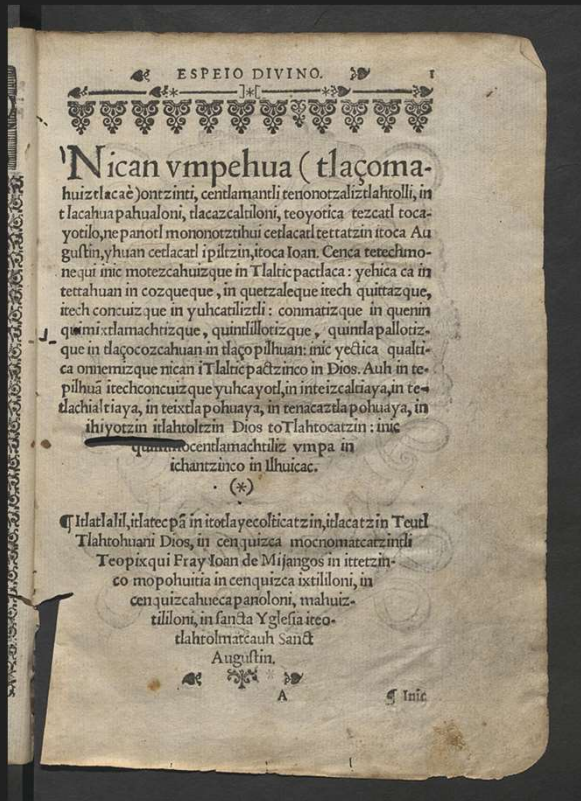 ESPEIO DIVINO. 1
Nican vmpehua (tlaçoma-
huiztlacaè)ontzinti, centlamantli tenonotzaliztlahtolli, in
tlacahuapahualoni, tlacazcaltiloni, teoyotica tezcatl toca-
yotilo, ne panotl mononotztihui cetlacatl tettatzin itoca Au
gustin, yhuan cetlacatl ipiltzin, itoca Ioan. Cenca tetechmo-
nequi inic motezcahuizque in Tlalticpactlaca: yehica ca in
tettahuan in cozqueque, in quetzaleque itech quittazque,
itech concuizque in yuhcatiliztli: conmatizque in quenin
quimixtlamachtizque, quintlillotizque, quintlapallotiz-
que in tlaçocozcahuan in tlaçopilhuan: inic yectica qualti-
ca onnemizque nican iTlalticpactzinco in Dios. Auh in te-
pilhuã itechconcuizque yuhcayotl, in inteizcaltiaya, in te-
tlachialtiaya, in teixtlapohuaya, in tenacaztlapohuaya, in
ihiyotzin itlahtoltzin Dios toTlahtocatzin: inic
ocentlamachtiliz vmpa in
ichantzinco in Ilhuicac.
(*)
¶ Itlatlalil, itlatecpã in itotlayecolticatzin, itlacatzin Teutl
Tlahtohuani Dios, in cenquizca mocnomatcatzintli
Teopixqui Fray Ioan de Mijangos in ittetzin-
co mopohuitia in cenquizca ixtililoni, in
cenquizcahuecapanoloni, mahuiz-
tililoni, in sancta Yglesia iteo-
tlahtolmatcauh Sanct
Augustin.
A ¶ Inic